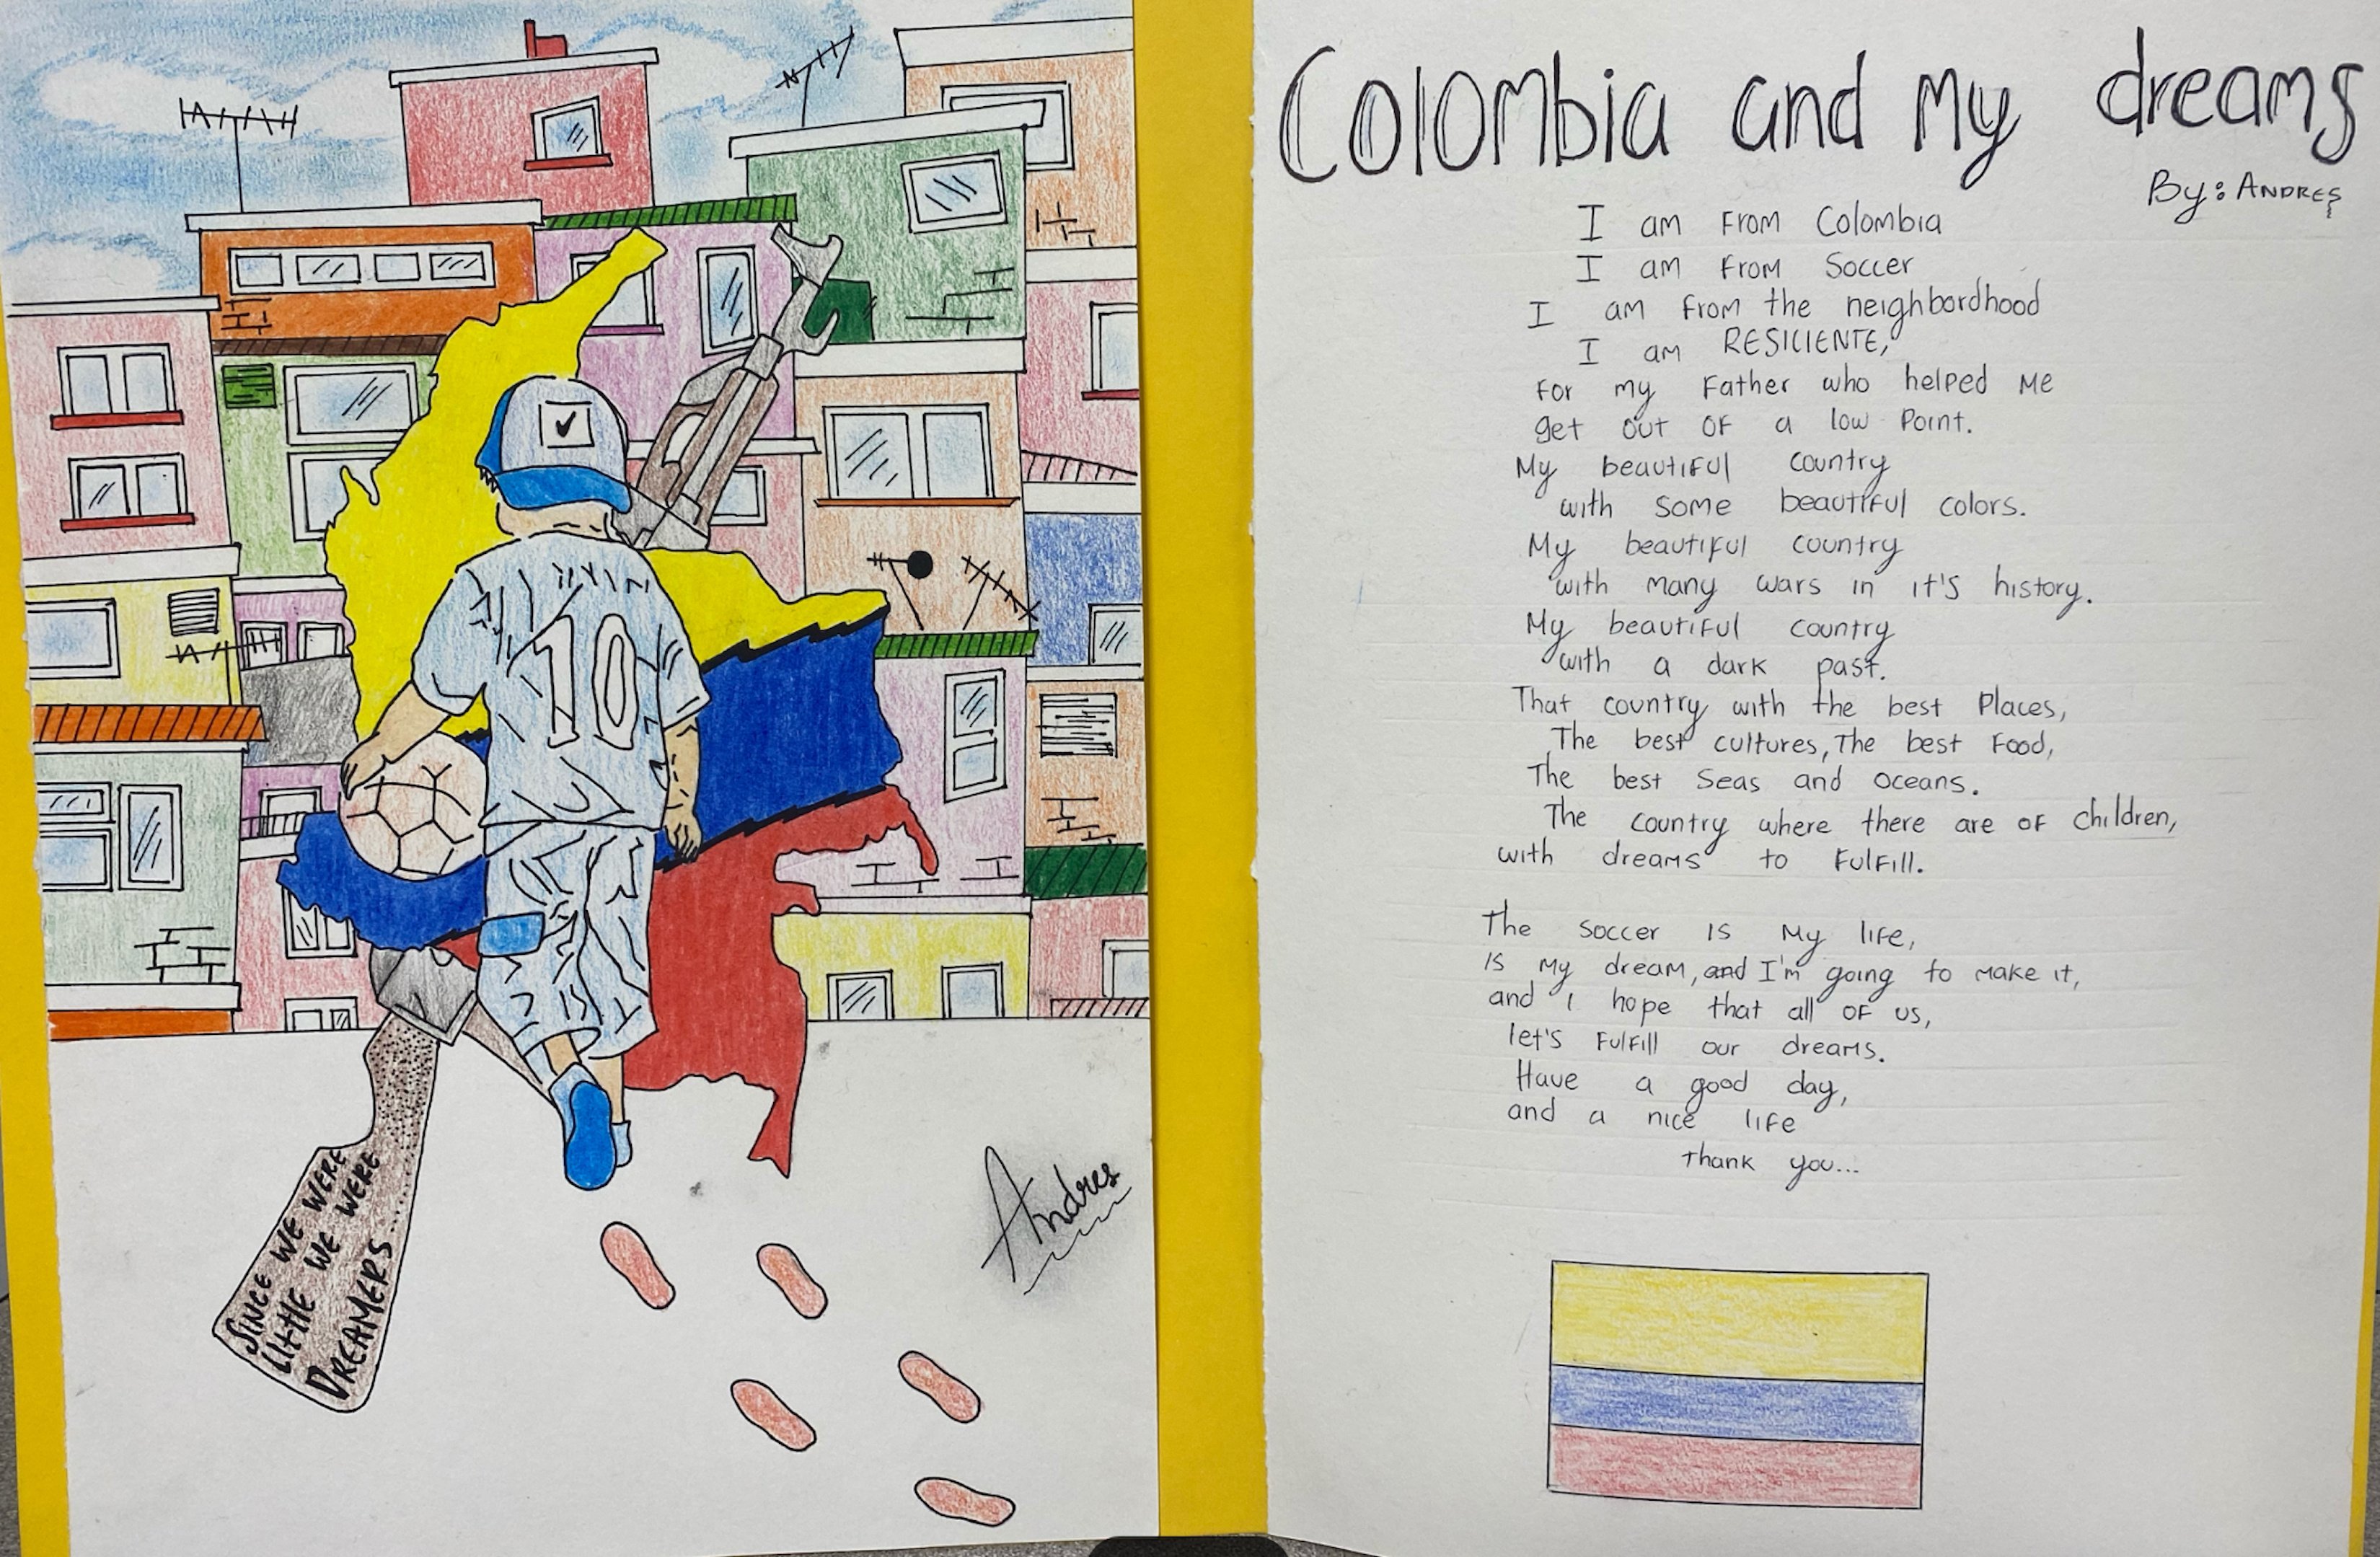 10
SINCE WE WERE
LittlE WE WERE
DREAMERS....
Andres
Colombia and my dreams
By: ANDRES
I am From Colombia
I am From Soccer
I am From the neighbordhood
I am RESICIENTE,
For my Father who helped me
get out OF a low Point.
My beautiful country
with some beautiful colors.
My beautiful country
with many wars in it's history.
My beautiful country
with a dark past.
That country with the best Places,
The best cultures, The best Food,
The best Seas and Oceans.
The country where there are OF children,
with dreams to Fulfill.
The Soccer is My life,
is my dream, and I'm going to make it,
and I hope that all OF us,
let's Fulfill our dreams.
Have a good day,
and a nice life
thank you...